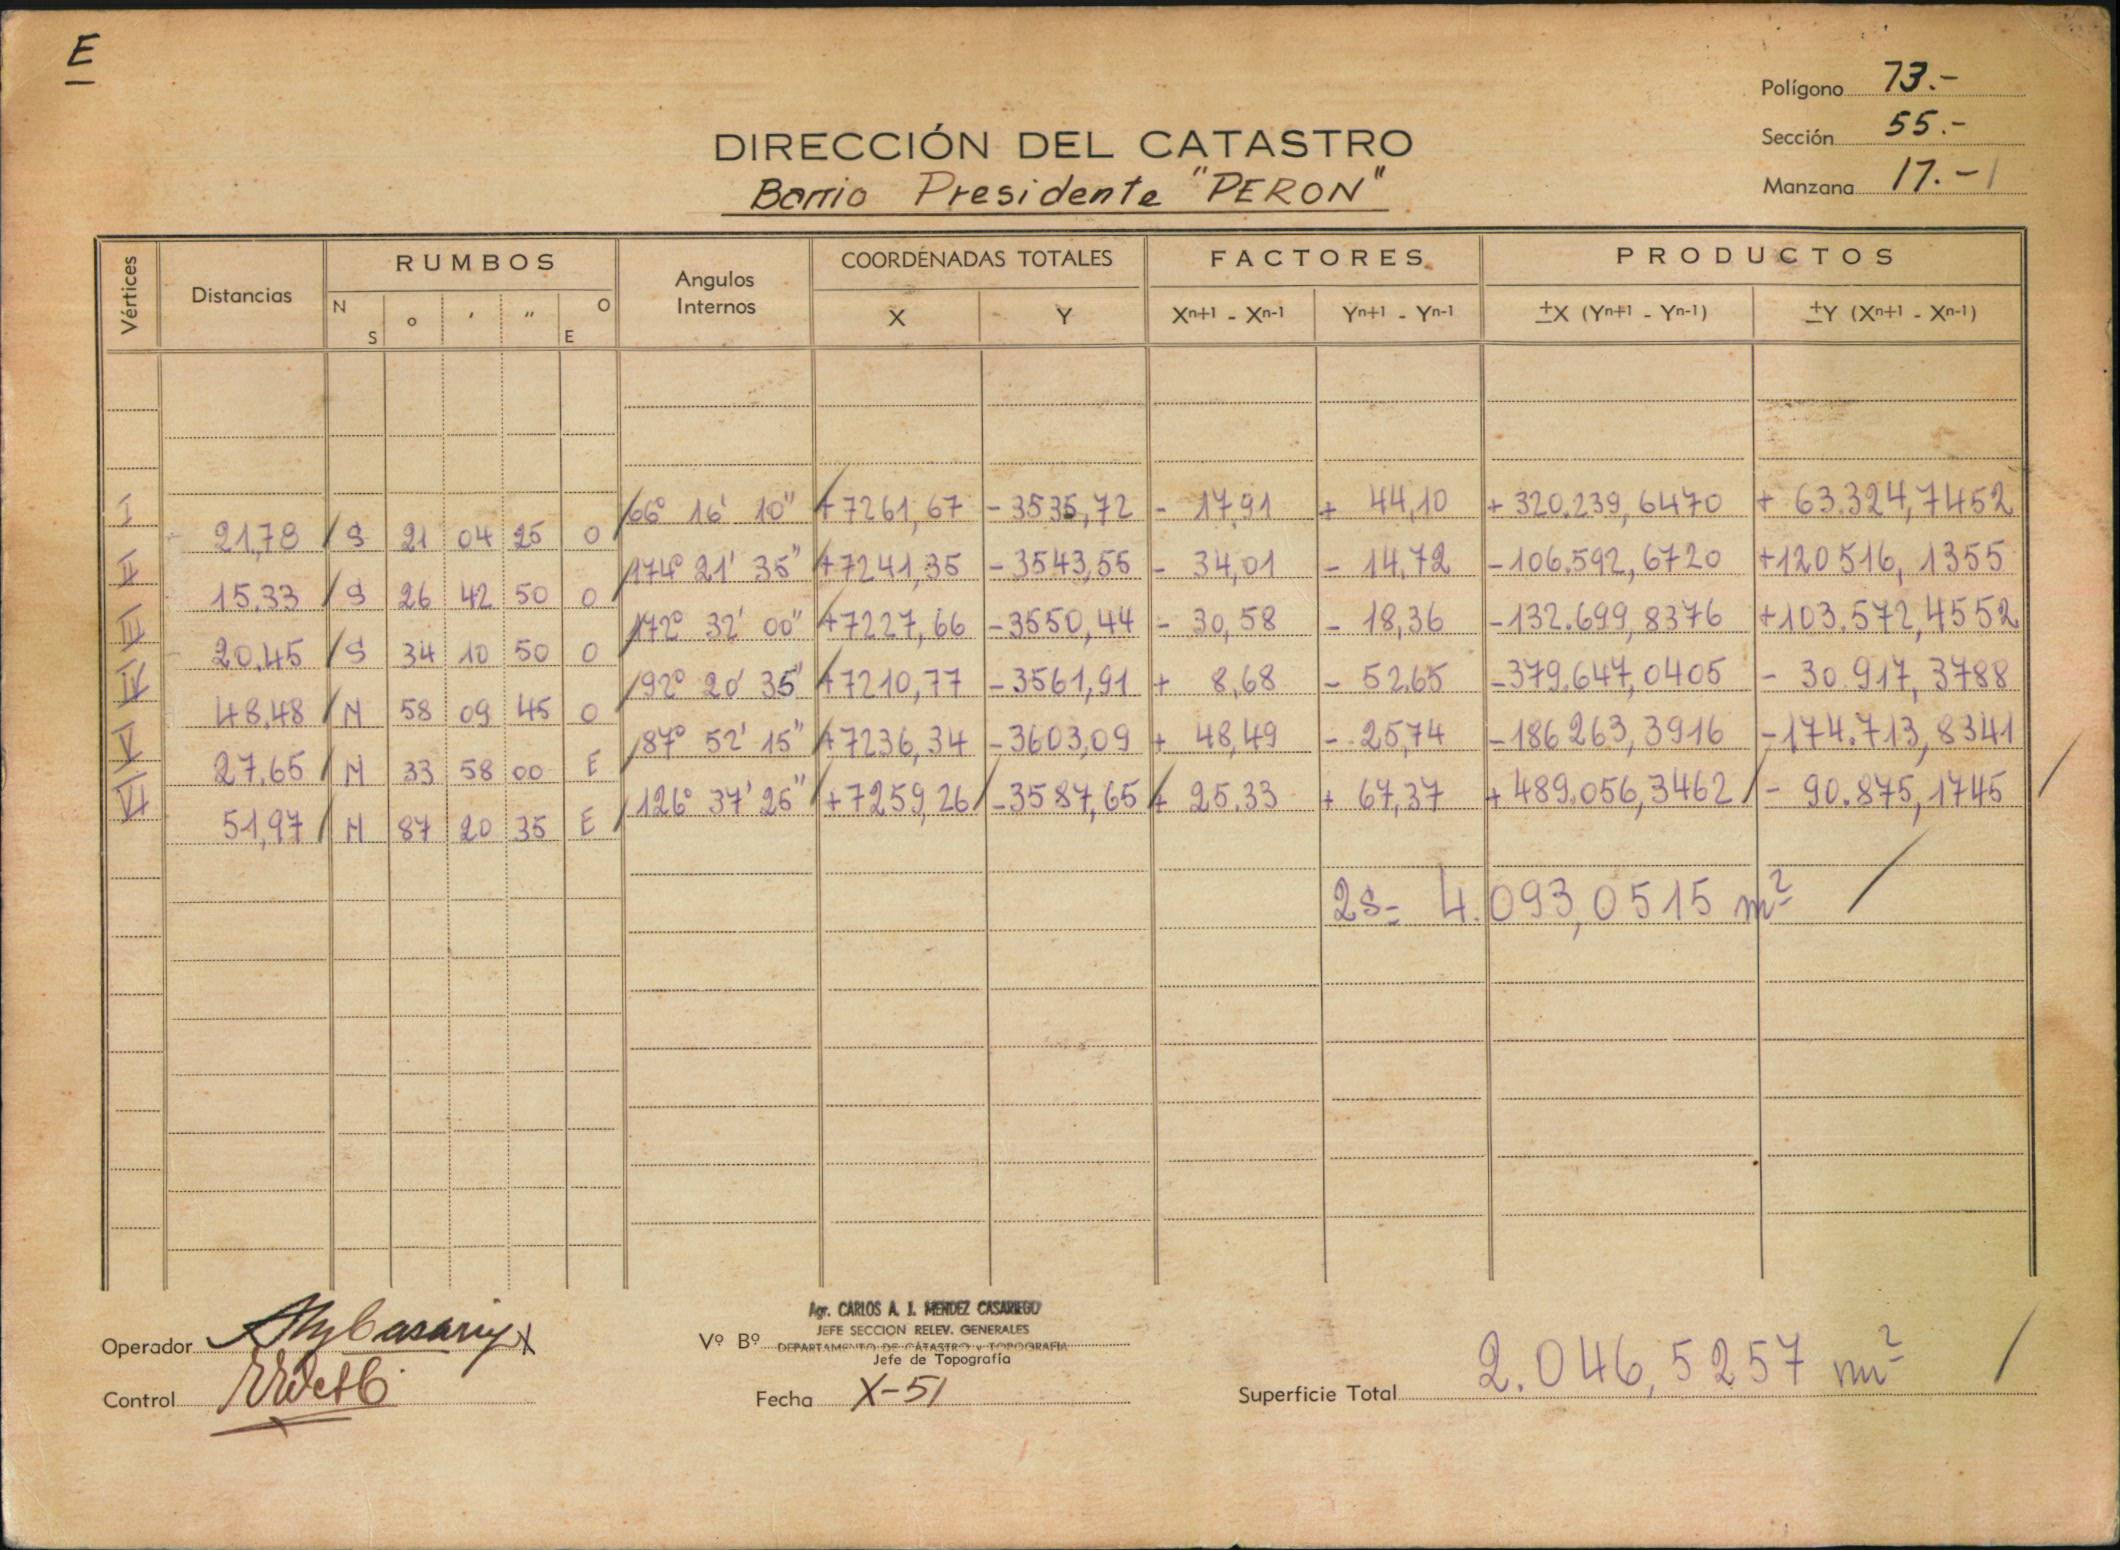 E
Polígono 73.-
Sección 55.-
Manzana 17.-
DIRECCIÓN DEL CATASTRO
Barrio Presidente "PERON"
Vértices Distancias RUMBOS Angulos Internos COORDENADAS TOTALES FACTORES PRODUCTOS
N S o ' " O E X Y Xn+1 - Xn-1 Yn+1 - Yn-1 ±X (Yn+1 - Yn-1) ±Y (Xn+1 - Xn-1)
I 66° 16' 10" +7261,67 -3535,72 - 17,91 + 44,10 +320.239,6470 + 63.324,7452
21,78 S 21 04 25 O
II 174° 21' 35" +7241,35 -3543,55 - 34,01 - 14,72 -106.592,6720 +120516,1355
15.33 S 26 42 50 O
III 172° 32' 00" +7227,66 -3550,44 - 30,58 - 18,36 -132.699,8376 +103.572,4552
20.45 S 34 10 50 O
IV 92° 20' 35" +7210,77 -3561,91 + 8,68 - 52.65 -379.647,0405 - 30.917,3788
48.48 N 58 09 45 O
V 87° 52' 15" +7236,34 -3603,09 + 48,49 - 25,74 -186263,3916 -174.713,8341
27.65 N 33 58 00 E
VI 126° 37' 25" +7259,26 -3587,65 + 25.33 + 67,37 +489.056,3462 - 90.875,1745
51,97 N 87 20 35 E
2S= 4.093,0515 m²
Operador
Control
Agr. CARLOS A. J. MENDEZ CASARIEGO
JEFE SECCION RELEV. GENERALES
Vº Bº DEPARTAMENTO DE CATASTRO y TOPOGRAFIA
Jefe de Topografía
Fecha X-51
Superficie Total 2.046,5257 m²